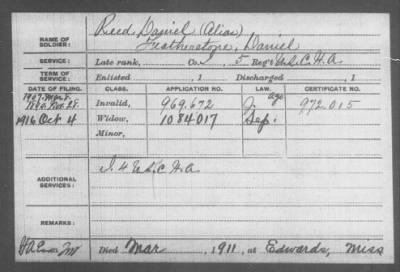 NAME OF SOLDIER: Reed, Daniel (Alias)
Featherstone, Daniel
SERVICE: Late rank, Co. I, 5 Reg't U.S.C.H.A.
TERM OF SERVICE: Enlisted , 1 Discharged , 1
DATE OF FILING. CLASS. APPLICATION NO. LAW. CERTIFICATE NO.
Invalid, 969.672 J. age 972.015
1916 Oct 4 Widow, 1084017 Sep.
Minor,
ADDITIONAL SERVICES: I. 4 U.S.C.H.A
REMARKS:
Died Mar , 1911, at Edwards, Miss